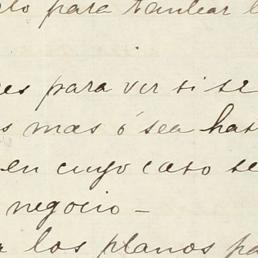 lo para tantear l
es para ver si se
s mas ó sea has
en cuyo caso se
negocio —
los planos pa